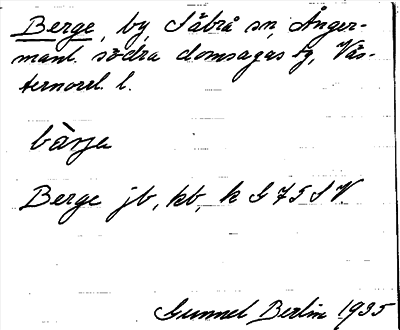 Berge, by, Säbrå sn, Ånger-
manl. södra domsagas tg, Väs-
ternorrl. l.
bàrje
Berge jb, kb, k G 7 5 S V.
Gunnel Berlin 1935